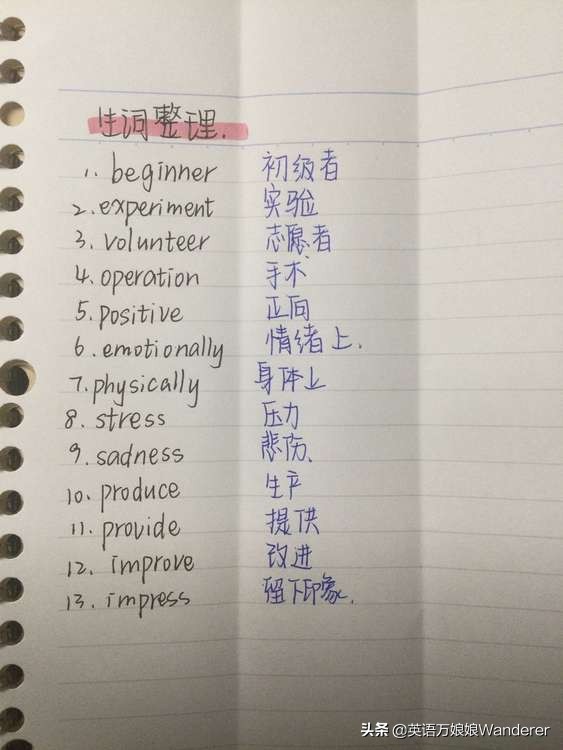 生词整理.
1. beginner 初级者
2. experiment 实验
3. volunteer 志愿者
4. operation 手术
5. positive 正向
6. emotionally 情绪上.
7. physically 身体上
8. stress 压力
9. sadness 悲伤.
10. produce 生产
11. provide 提供
12. improve 改进
13. impress 留下印象.
头条 @英语万娘娘Wanderer